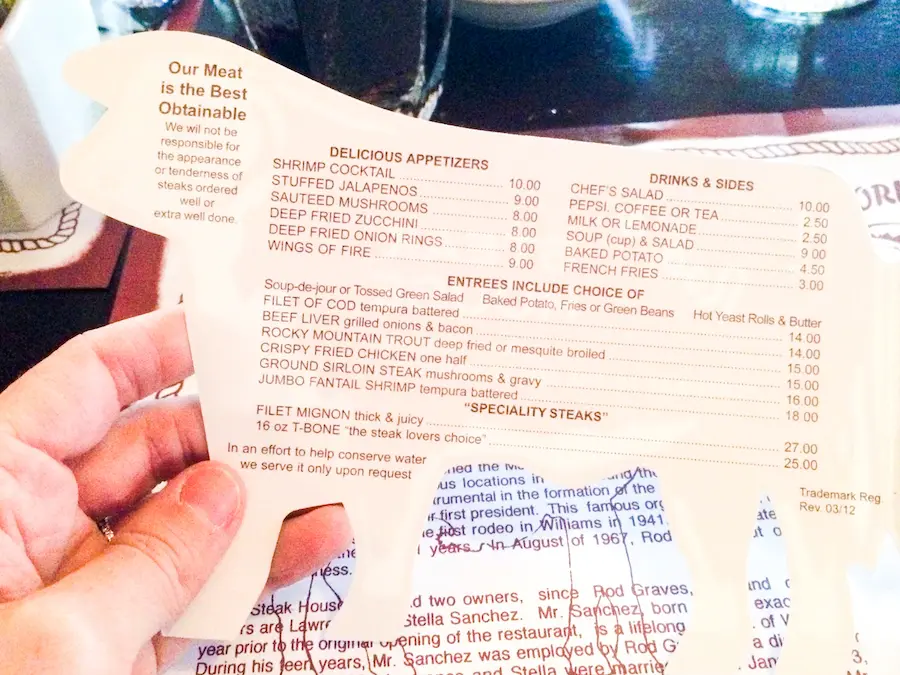 Our Meat
is the Best
Obtainable
We wil not be
responsible for
the appearance
or tenderness of
steaks ordered
well or
extra well done.
DELICIOUS APPETIZERS
SHRIMP COCKTAIL 10.00
STUFFED JALAPENOS 9.00
SAUTEED MUSHROOMS 8.00
DEEP FRIED ZUCCHINI 8.00
DEEP FRIED ONION RINGS 8.00
WINGS OF FIRE 9.00
DRINKS & SIDES
CHEF'S SALAD 10.00
PEPSI, COFFEE OR TEA 2.50
MILK OR LEMONADE 2.50
SOUP (cup) & SALAD 9 00
BAKED POTATO 4.50
FRENCH FRIES 3.00
ENTREES INCLUDE CHOICE OF
Soup-de-jour or Tossed Green Salad Baked Potato, Fries or Green Beans Hot Yeast Rolls & Butter
FILET OF COD tempura battered 14.00
BEEF LIVER grilled onions & bacon 14.00
ROCKY MOUNTAIN TROUT deep fried or mesquite broiled 15.00
CRISPY FRIED CHICKEN one half 15.00
GROUND SIRLOIN STEAK mushrooms & gravy 16.00
JUMBO FANTAIL SHRIMP tempura battered 18 00
"SPECIALITY STEAKS"
FILET MIGNON thick & juicy 27.00
16 oz T-BONE "the steak lovers choice" 25.00
In an effort to help conserve water
we serve it only upon request
Trademark Reg
Rev. 03/12
the
locations in
in the formation of the
first president. This famous
first rodeo in Williams in 1941.
years. In August of 1967, Rod
Steak House two owners, since Rod Graves,
are Stella Sanchez. Mr. Sanchez, born
year prior to the original opening of the restaurant, is a lifelong of
During his teen years, Mr. Sanchez was employed by Rod
and Stella were